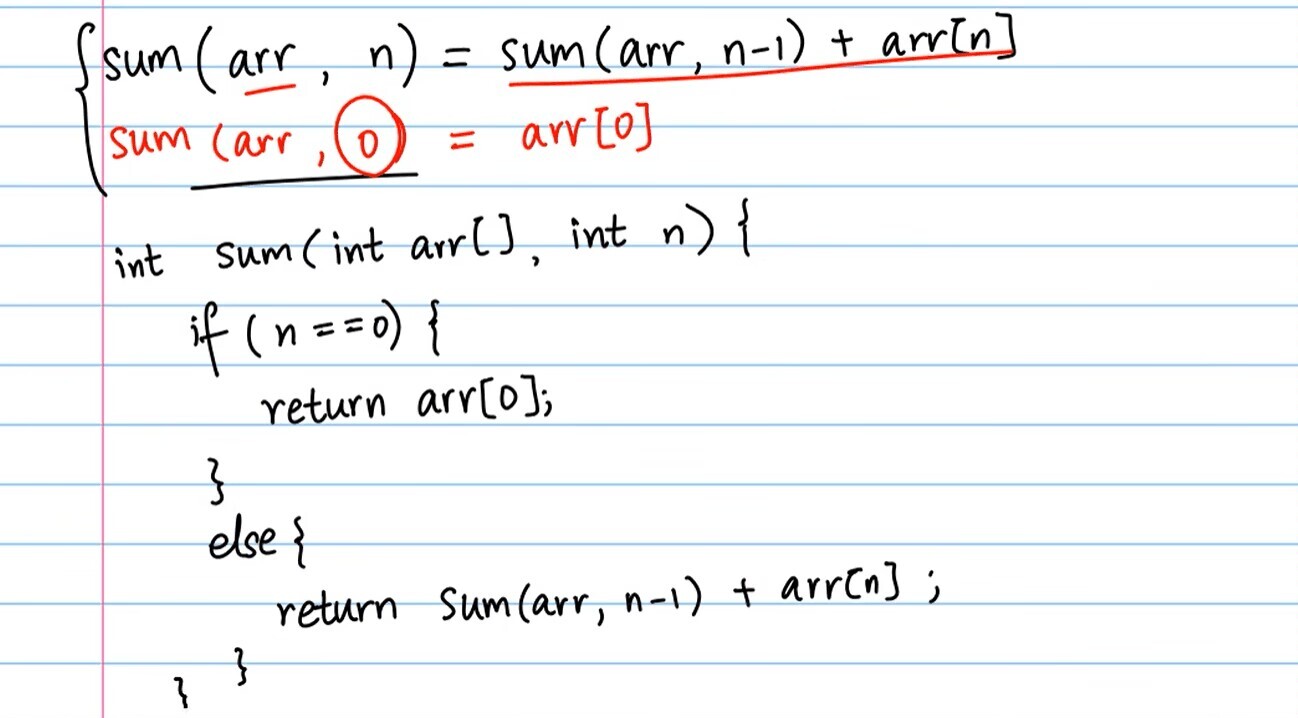 { sum(arr, n) = sum(arr, n-1) + arr[n]
sum(arr, 0) = arr[0]
int sum(int arr[], int n) {
if (n==0) {
return arr[0];
}
else {
return sum(arr, n-1) + arr[n];
}
}